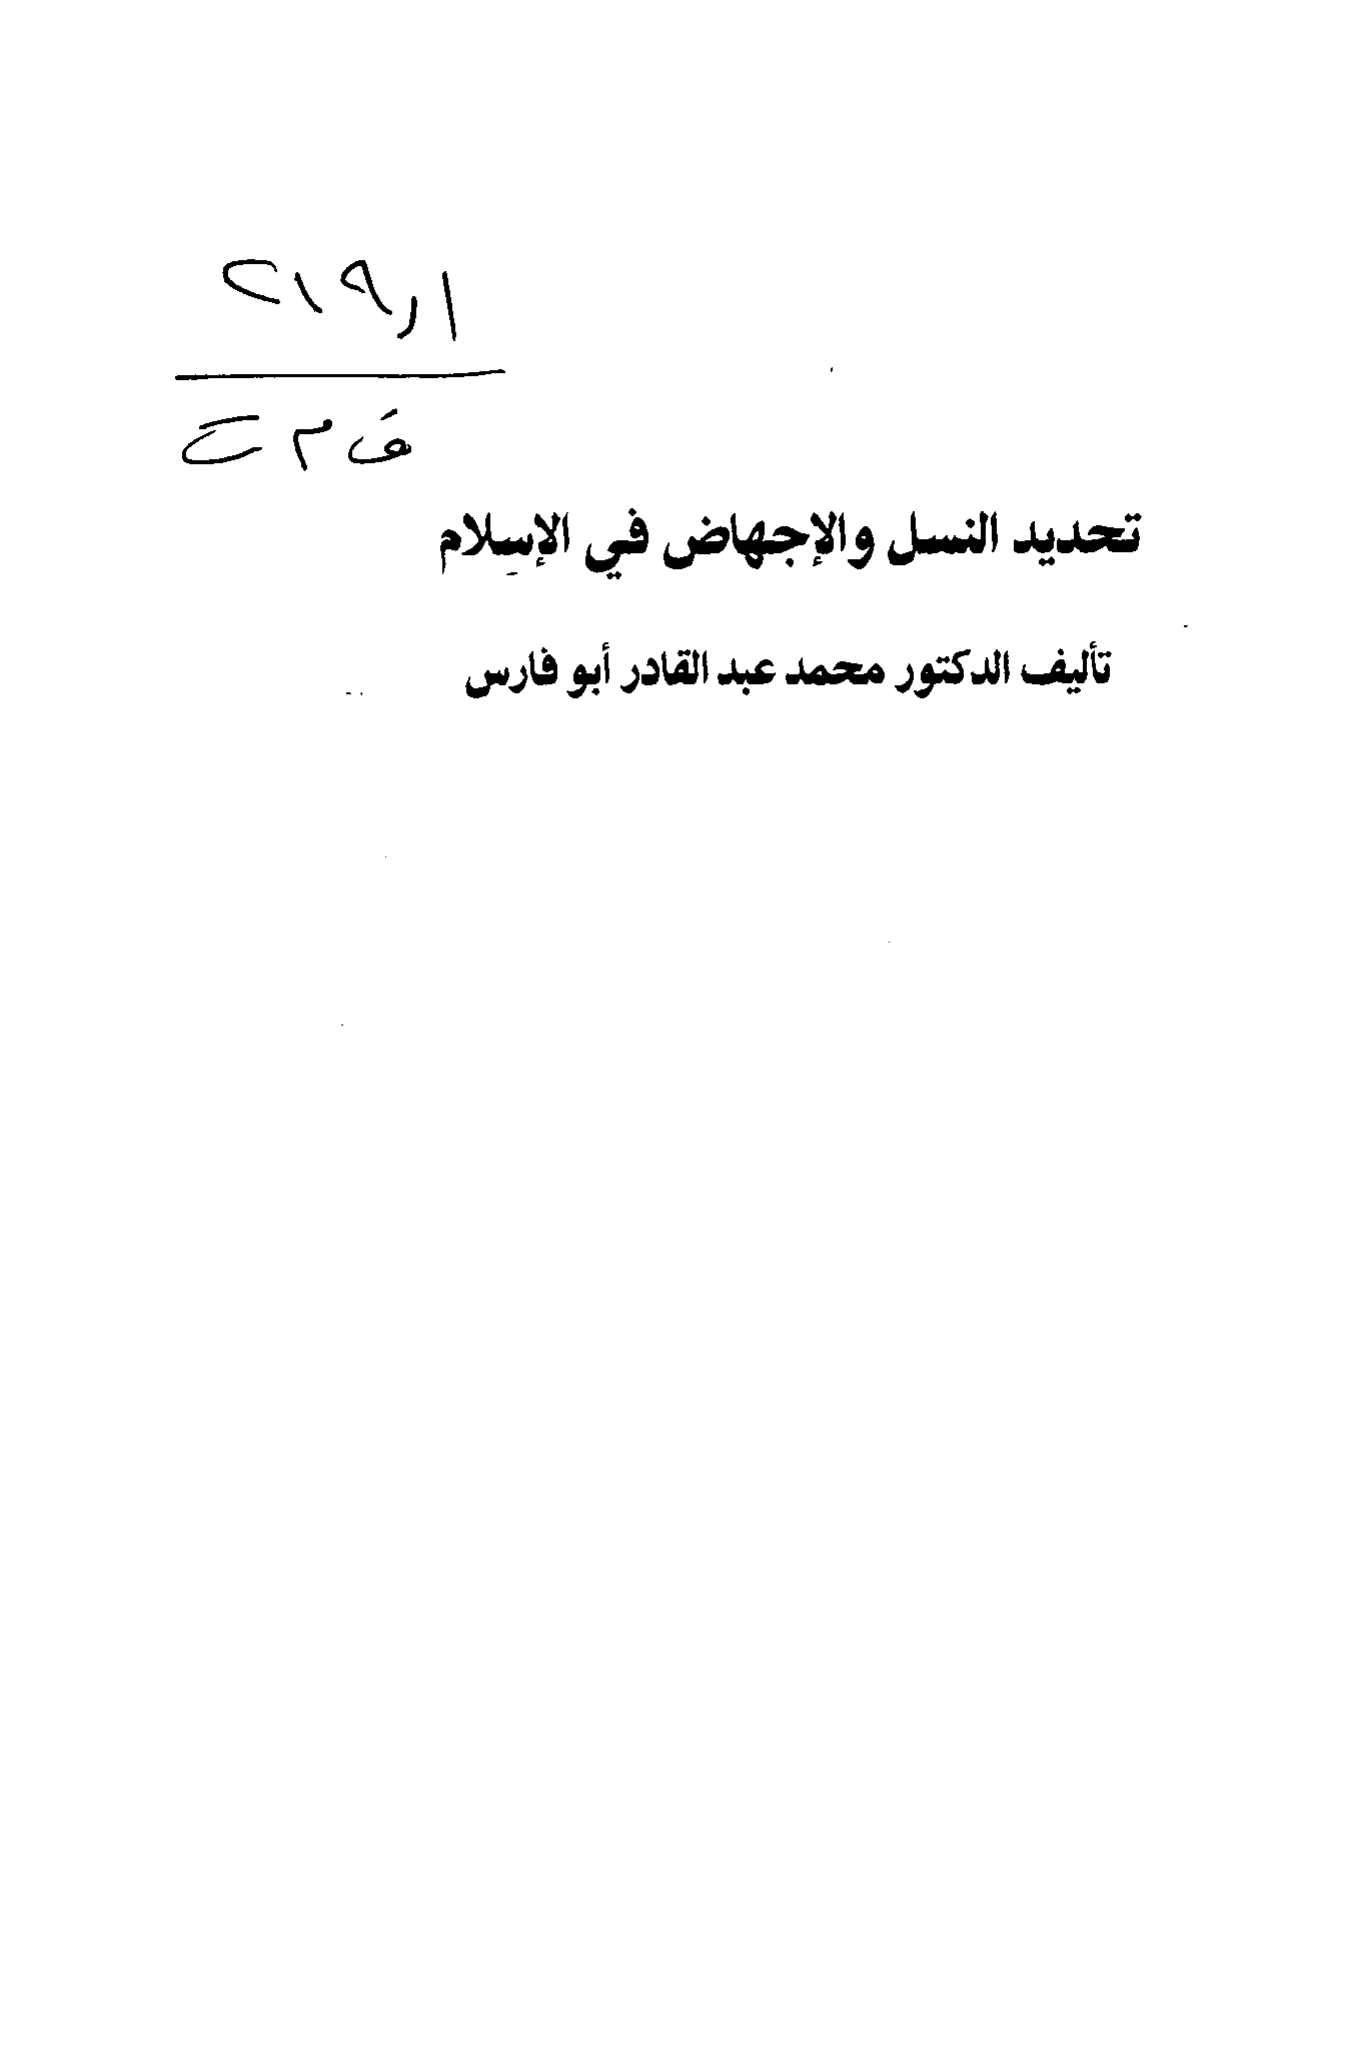 ٢١٩٫١
ف م ت
تحديد النسل والإجهاض في الإسلام
تأليف الدكتور محمد عبد القادر أبو فارس